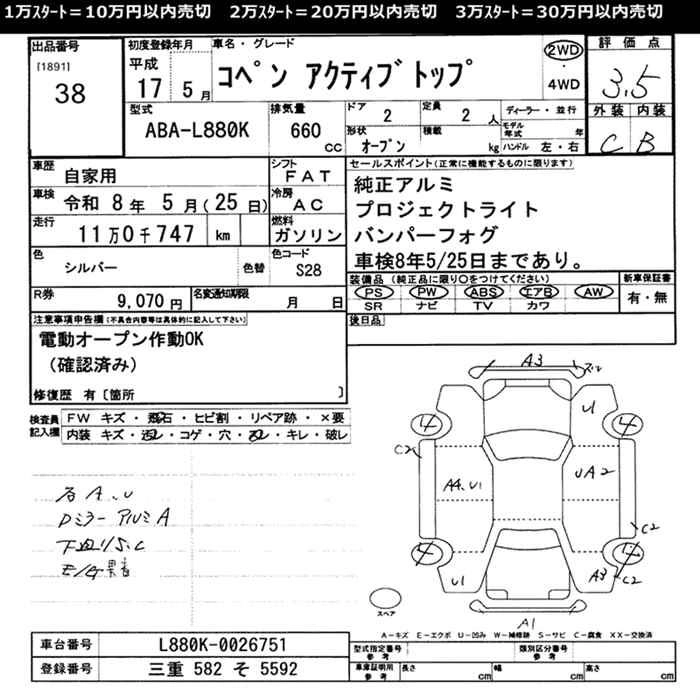 1万スタート＝10万円以内売切　2万スタート＝20万円以内売切　3万スタート＝30万円以内売切
出品番号
[1891]
38
初度登録年月
平成
17 5月
車名・グレード
コペン アクティブトップ
2WD
・
4WD
評価点
3.5
外装 内装
C B
型式
ABA-L880K
排気量
660
cc
ドア
2
定員
2 人
形状
オープン
積載
kg
ディーラー・並行
モデル年式 年
ハンドル 左・右
車歴
自家用
シフト
FAT
車検
令和 8年 5月(25日)
冷房
AC
走行
11万0千747 km
燃料
ガソリン
色
シルバー
色替
色コード
S28
R券
9,070円
名変通知期限
月 日
セールスポイント(正常に機能するものに限ります)
純正アルミ
プロジェクトライト
バンパーフォグ
車検8年5/25日まであり。
装備品 (純正品に限り○をつけてください)
PS PW ABS エアB AW
SR ナビ TV カワ
新車保証書
有・無
後日品
注意事項申告欄(不具合内容等は具体的に記入して下さい)
電動オープン作動OK
(確認済み)
修復歴 有〔箇所 〕
検査員
記入欄
FW キズ・飛石・ヒビ割・リペア跡・×要
内装 キズ・汚れ・コゲ・穴・スレ・キレ・破レ
A、U
Dミラー アルミ A
下回りS.C
A3
U
4
4
C2
A4、U1
UA2
C2
4
4
U1
A3
C2
A1
スペア
A－キズ E－エクボ U－凹み W－補修跡 S－サビ C－腐食 XX－交換済
車台番号
L880K-0026751
登録番号
三重 582 そ 5592
型式指定番号
参考
類別区分番号
参考
車庫証明用
参考
長さ cm
幅 cm
高さ cm